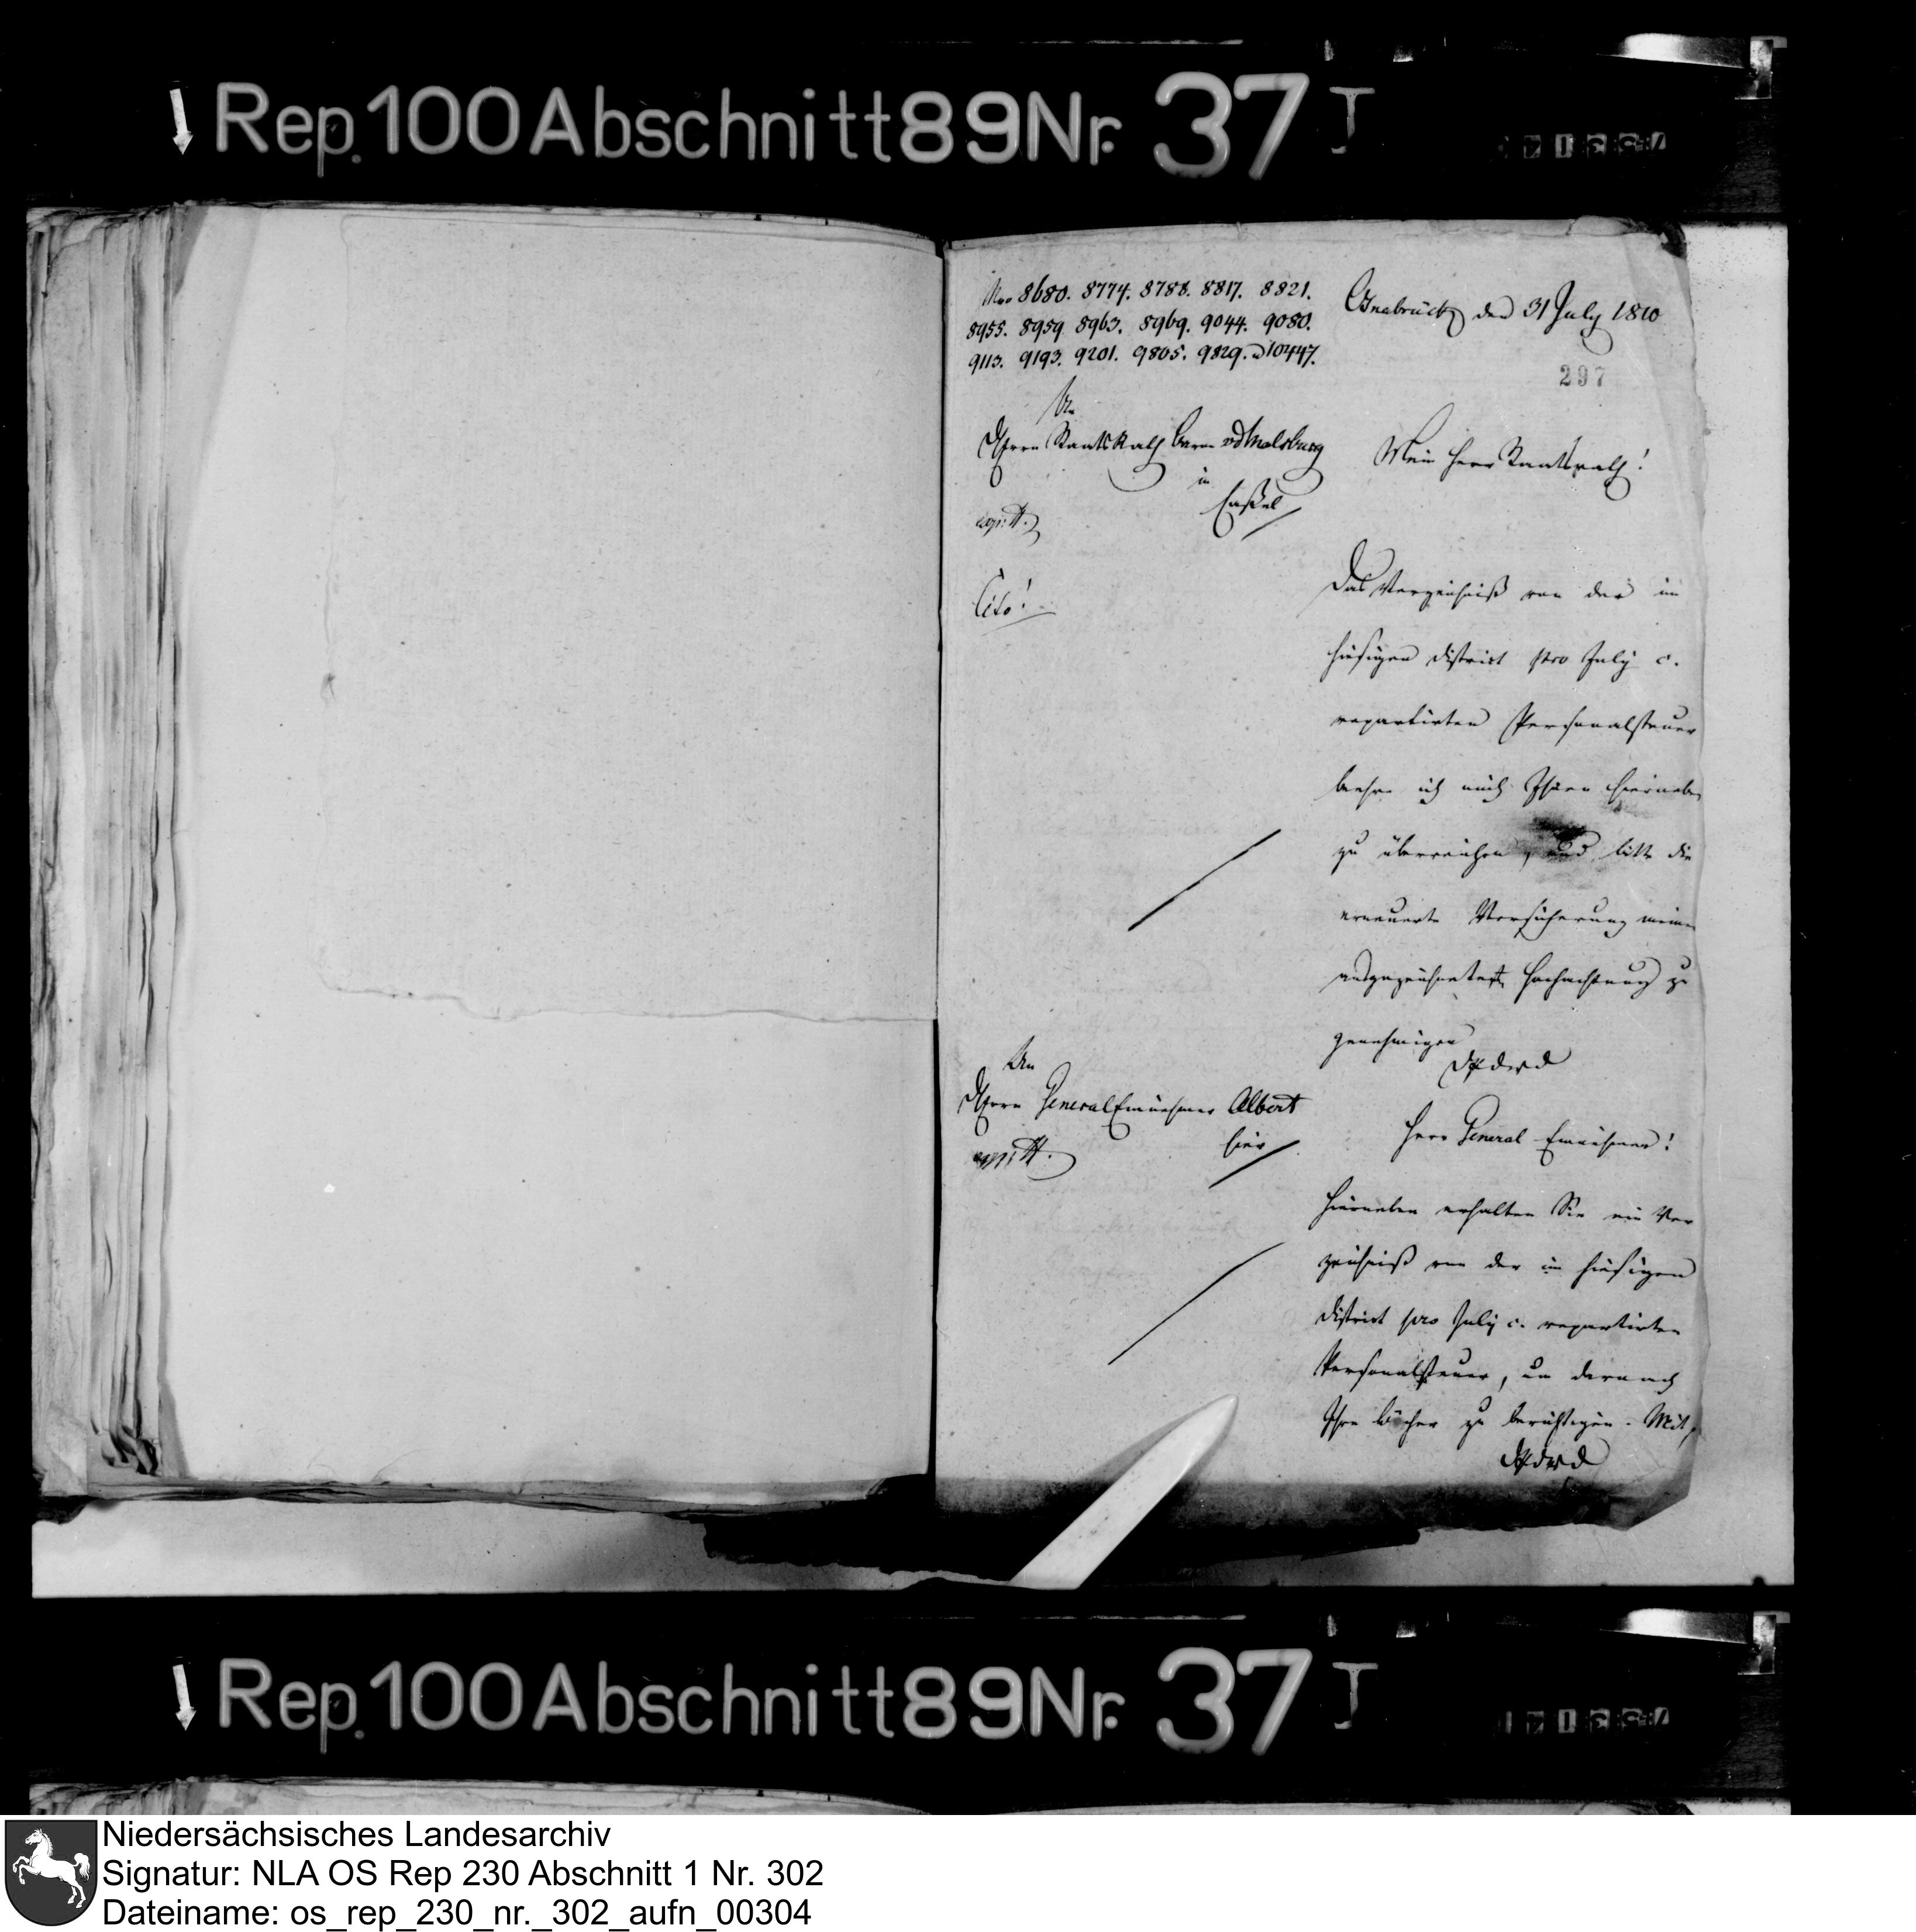 Rep. 100 Abschnitt 89 Nr. 37 I
Nro 8680. 8774. 8788. 8817. 8821.
8955. 8959 8963. 8969. 9044. 9080.
9113. 9193. 9201. 9805. 9829. 10447.
Osnabrück den 31 July 1810
297
An
Herrn StaatsRath Baron vd Malsburg
in
Caßel
expdt.
Cito!
Mein Herr Staatsrath!
Das Verzeichniß von der im
hiesigen District pro July c.
repartirten Personalsteuer
beehre ich mich Ihnen hierneben
zu überreichen, und bitte die
erneuerte Versicherung meiner
ausgezeichneten Hochachtung zu
genehmigen
An
Herrn General Einnehmer Albert
hier
expdt.
Herr General Einnehmer!
Hierneben erhalten Sie ein Ver
zeichniß von der im hiesigen
District pro July c. repartirten
Personalsteuer, um darnach
Ihre Bücher zu berichtigen. Mit
Rep. 100 Abschnitt 89 Nr. 37 I
Niedersächsisches Landesarchiv
Signatur: NLA OS Rep 230 Abschnitt 1 Nr. 302
Dateiname: os_rep_230_nr._302_aufn_00304